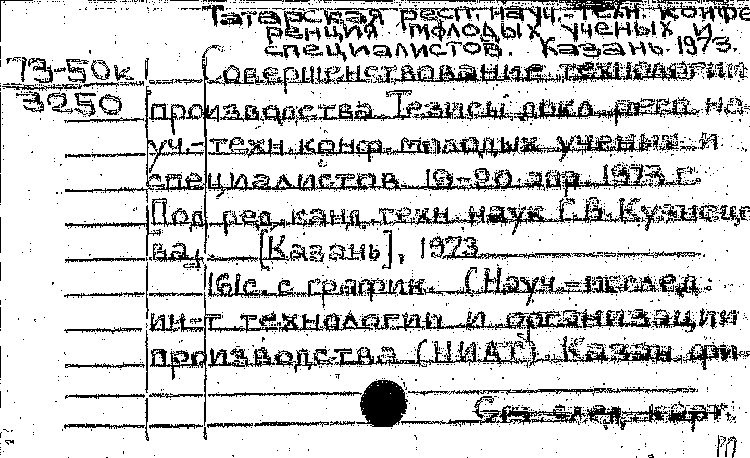 Татарская респ. науч.-техн. конфе-
ренция молодых ученых и
специалистов. Казань. 1973.
73-50к Совершенствование технологии
3250 производства. Тезисы докл. респ. на-
уч.-техн. конф. молодых ученых и
специалистов. 19-20 апр. 1973 г.
Под ред. канд. техн. наук Г.В. Кузнецо-
ва. [Казань], 1973
161с. с график. (Науч.-исслед.
ин-т технологии и организации
производства (НИАТ). Казан. фи-
См. след. карт.